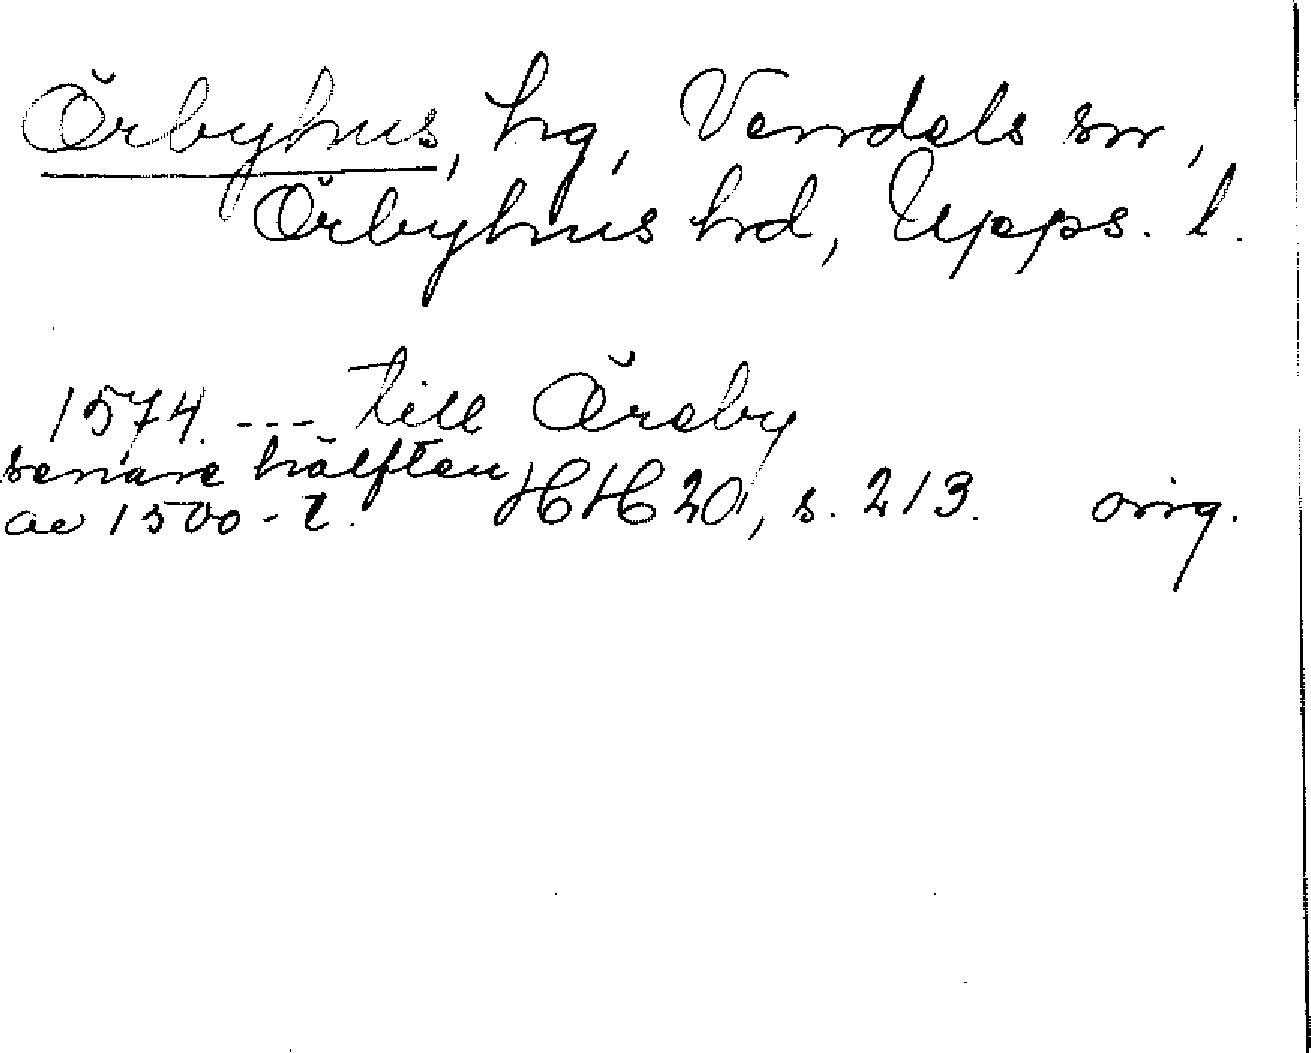 Örbyhus, hg, Vendels sn,
Örbyhus hd, Upps. l.
1574. --- till Öreby
senare hälften
av 1500-t. HH 20, s. 213. orig.